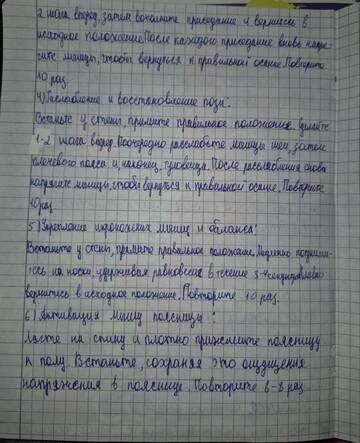 2 шага вперед, затем выполните приседание и вернитесь в
исходное положение. После каждого приседание вновь напря-
гите мышцы, чтобы вернуться к правильной осанке. Повторите
10 раз.
4) Расслабление и восстановление позы:
Встаньте у стены, примите правильное положение. Сделайте
1-2 шага вперед. Поочередно расслабьте мышцы шеи, затем
плечевого пояса и, наконец, туловища. После расслабления снова
напрягите мышцы, чтобы вернуться к правильной осанке. Повторите
10 раз.
5) Укрепление икроножных мышц и баланса:
Встаньте у стены, примите правильное положение. Медленно подними-
тесь на носки, удерживая равновесие в течение 3-4 секунд,
вернитесь в исходное положение. Повторите 10 раз.
6) Активация мышц поясницы:
Лягте на спину и плотно прижмите поясницу
к полу. Встаньте, сохраняя это ощущения
напряжения в пояснице. Повторите 6-8 раз